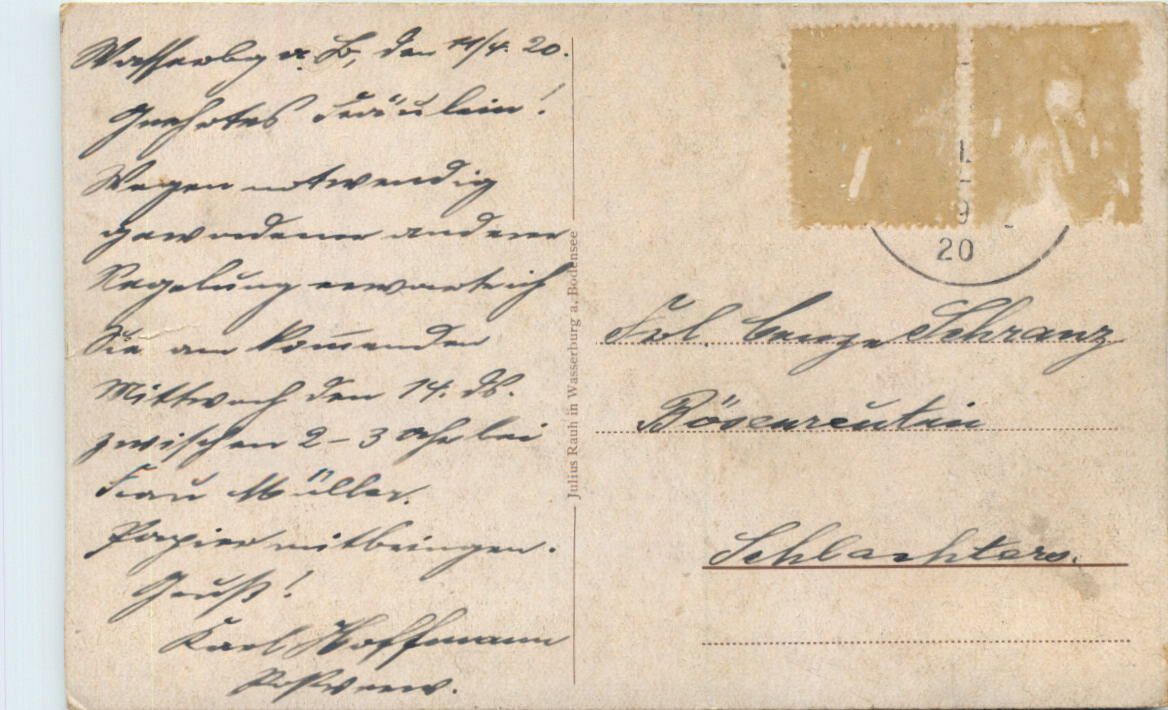 Wasserbg a. B, den 11/4. 20.
Geehrtes Fräulein!
Wegen notwendig
gewordener anderer
Regelung erwarte ich
Sie am kommenden
Mittwoch den 14. ds.
zwischen 2 – 3 Uhr bei
Frau Müller.
Papier mitbringen.
Gruß!
Karl Hoffmann
Postverw.
Julius Rauh in Wasserburg a. Bodensee
20
Frl. Schranz
Bösenreutin
Schlachters.